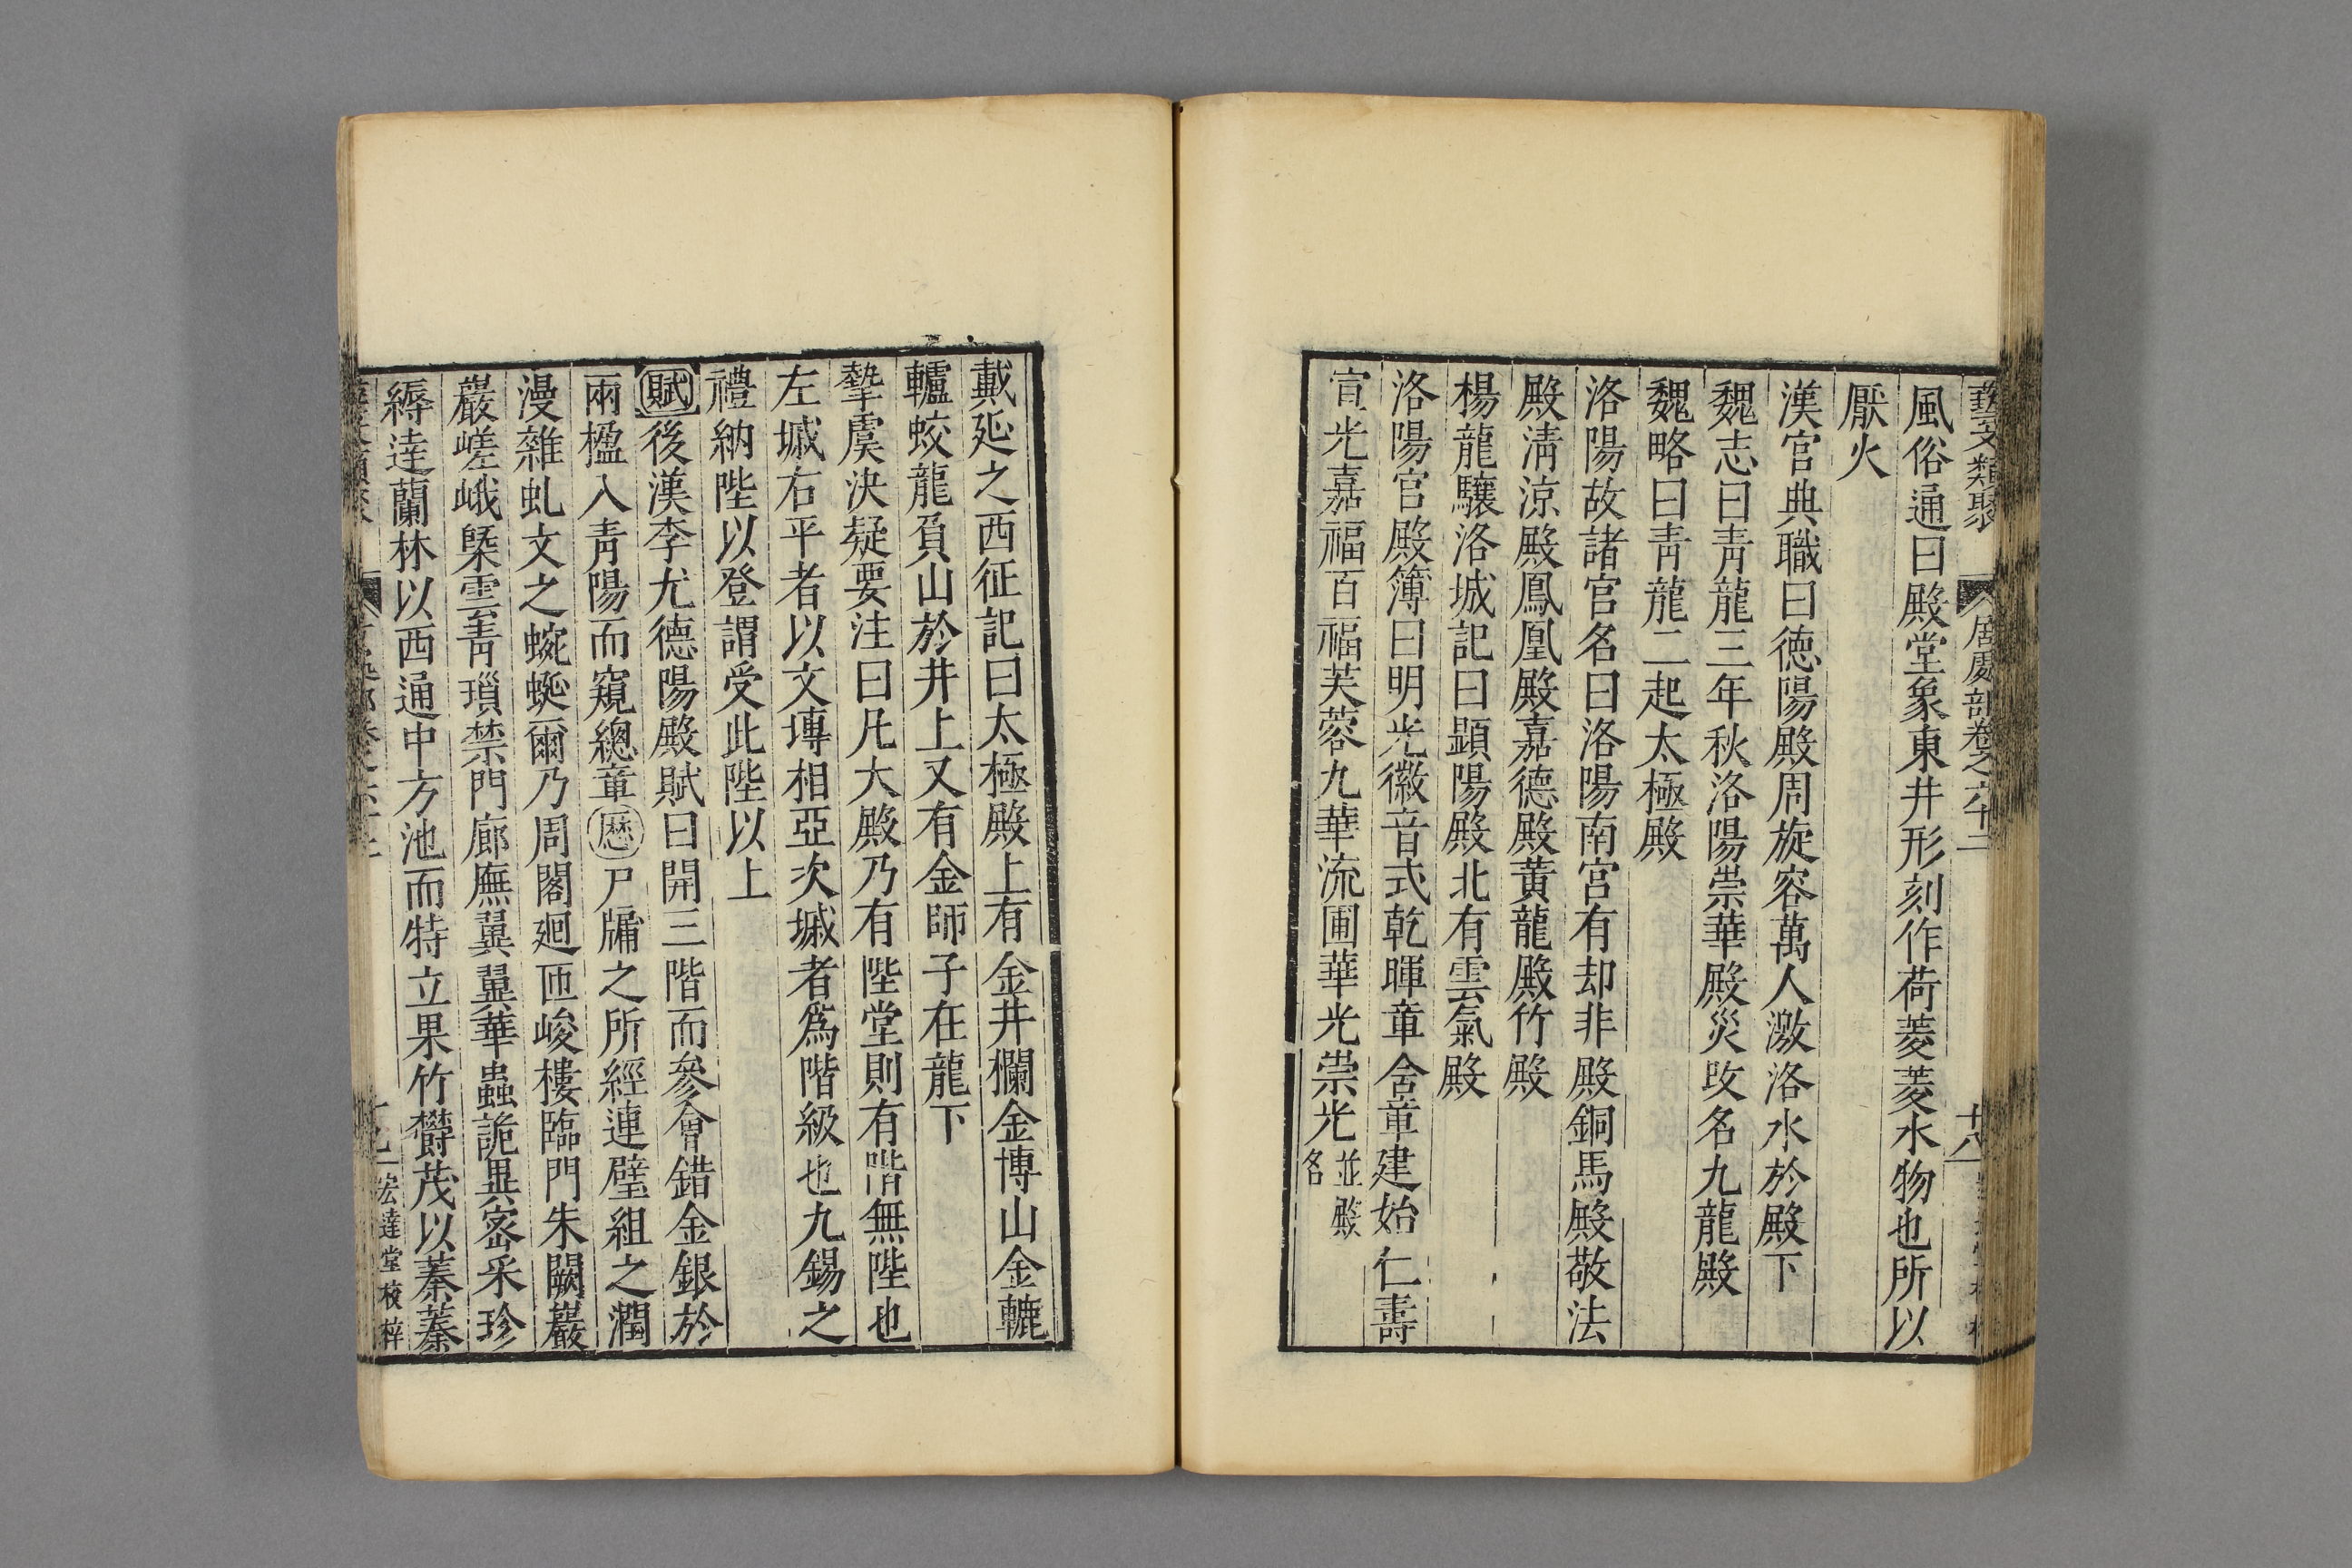 藝文類聚 居處部卷之六十二 十八
風俗通曰殿堂象東井形刻作荷菱菱水物也所以
厭火
漢官典職曰德陽殿周旋容萬人激洛水於殿下
魏志曰靑龍三年秋洛陽崇華殿災攺名九龍殿
魏略曰靑龍二起太極殿
洛陽故諸宮名曰洛陽南宮有却非殿銅馬殿敬法
殿淸涼殿鳳凰殿嘉德殿黃龍殿竹殿
楊龍驤洛城記曰顯陽殿北有雲氣殿
洛陽宮殿簿曰明光徽音式乾暉章含章建始仁壽
宣光嘉福百福芙蓉九華流圃華光崇光並殿名
戴延之西征記曰太極殿上有金井欄金博山金轆
轤蛟龍負山於井上又有金師子在龍下
摯虞決疑要注曰凡大殿乃有陛堂則有階無陛也
左墄右平者以文塼相亞次墄者爲階級也九錫之
禮納陛以登謂受此陛以上
賦後漢李尤德陽殿賦曰開三階而參會錯金銀於
兩楹入靑陽而窺總章歷戸牖之所經連璧組之潤
漫雜虬文之蜿蜒爾乃周閣迴匝峻樓臨門朱闕巖
巖嵯峨槩雲靑瑣禁門廊廡翼翼華蟲詭異密采珍
縟達蘭林以西通中方池而特立果竹欝茂以蓁蓁
宏達堂校梓